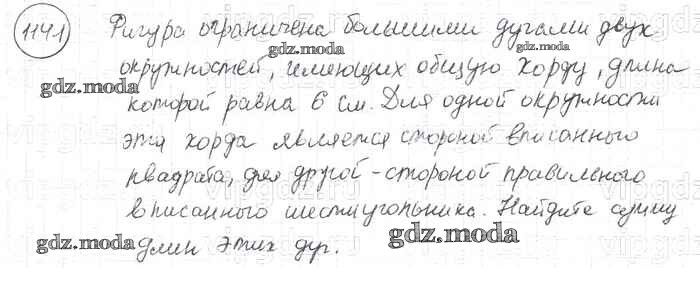 1141 Фигура ограничена большими дугами двух
gdz.moda
окружностей, имеющих общую хорду, длина
gdz.moda
gdz.moda
которой равна 6 см. Для одной окружности
эта хорда является стороной вписанного
квадрата, для другой - стороной правильного
вписанного шестиугольника. Найдите сумму
gdz.moda
gdz.moda
длин этих дуг.